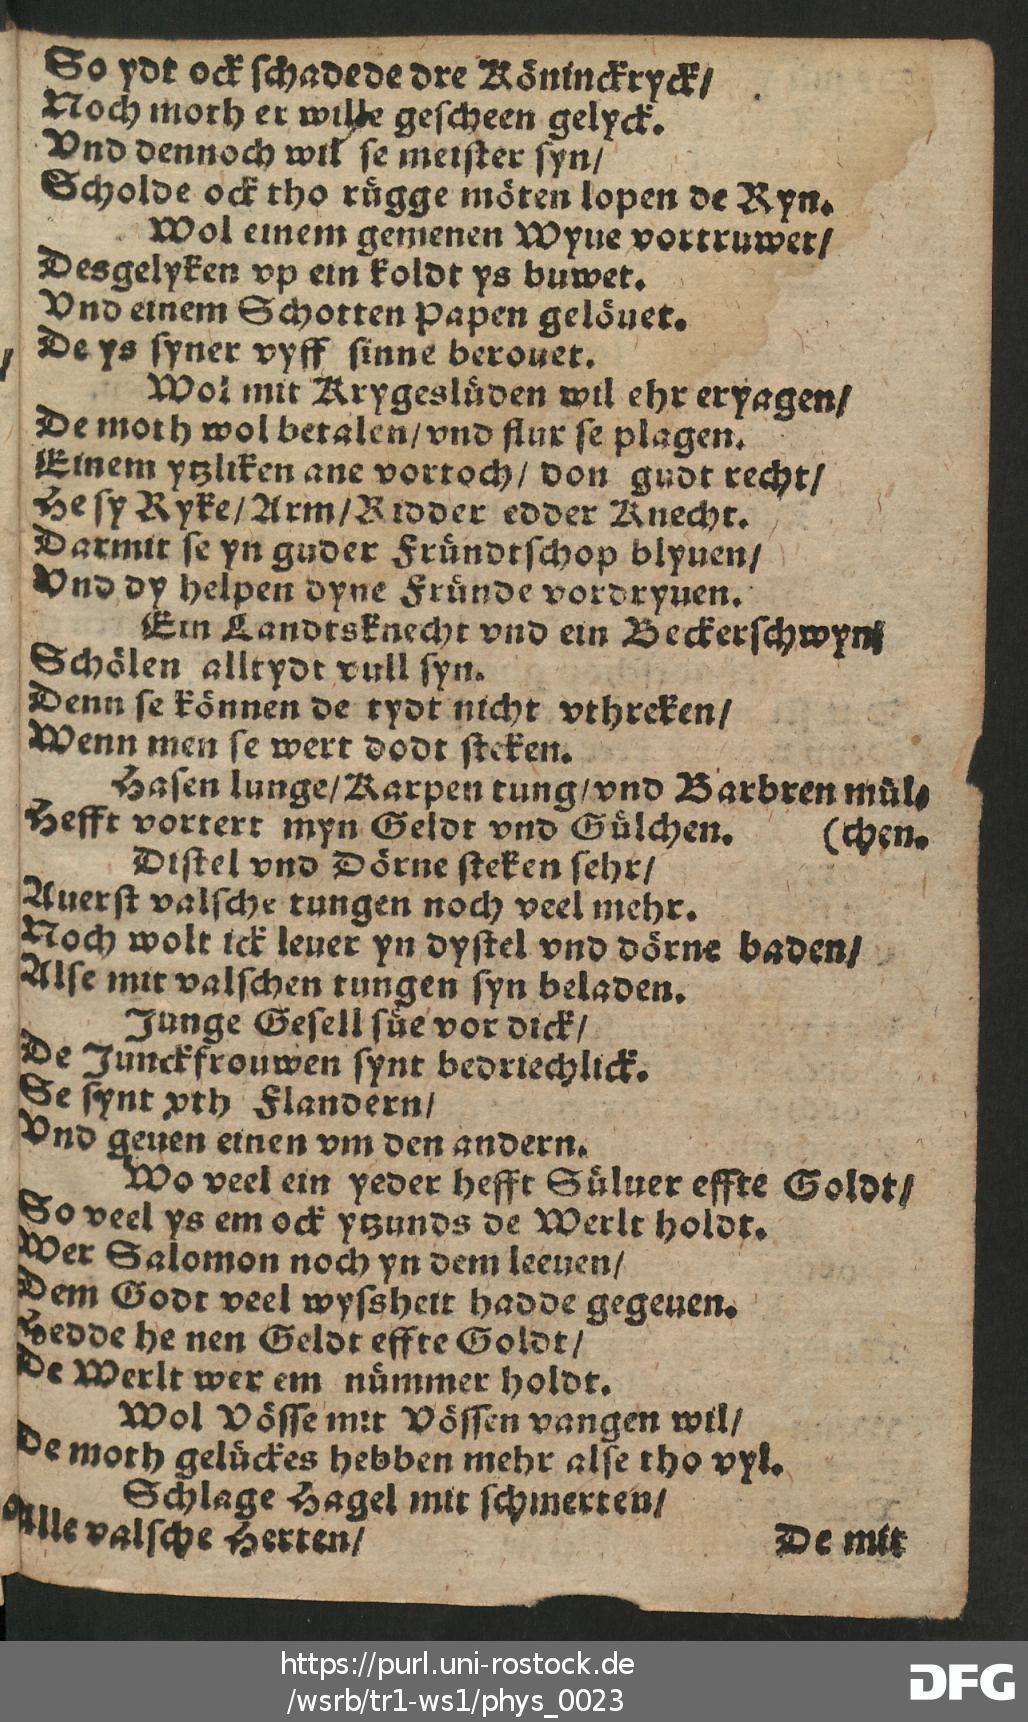 So ydt ock schadede dre Köninckryck/
Noch moth er wille gescheen gelyck.
Vnd dennoch wil se meister syn/
Scholde ock tho rügge möten lopen de Ryn.
Wol einem gemenen Wyue vortruwet/
Desgelyken vp ein koldt ys buwet.
Vnd einem Schotten Papen gelöuet.
De ys syner vyff sinne berouet.
Wol mit Krygeslüden wil ehr eryagen/
De moth wol betalen/ vnd flur se plagen.
Einem ytzliken ane vortoch/ don gudt recht/
He sy Ryke/ Arm/ Ridder edder Knecht.
Darmit se yn guder Fründtschop blyuen/
Vnd dy helpen dyne Fründe vordryuen.
Ein Landtsknecht vnd ein Beckerschwyn/
Schölen alltydt vull syn.
Denn se können de tydt nicht vthreken/
Wenn men se wert dodt steken.
Hasen lunge/ Karpen tung/ vnd Barbren mül⸗
Hefft vortert myn Geldt vnd Gülchen. (chen.
Distel vnd Dörne steken sehr/
Auerst valsche tungen noch veel mehr.
Noch wolt ick leuer yn dystel vnd dörne baden/
Alse mit valschen tungen syn beladen.
Junge Gesell süe vor dick/
De Junckfrouwen synt bedriechlick.
Se synt vth Flandern/
Vnd geuen einen vm den andern.
Wo veel ein yeder hefft Süluer effte Goldt/
So veel ys em ock ytzunds de Werlt holdt.
Wer Salomon noch yn dem leeuen/
Dem Godt veel wyssheit hadde gegeuen.
Hedde he nen Geldt effte Goldt/
De Werlt wer em nümmer holdt.
Wol Vösse mit Vössen vangen wil/
De moth gelückes hebben mehr alse tho vyl.
Schlage Hagel mit schmerten/
Alle valsche Herten/
De mit
https://purl.uni-rostock.de
/wsrb/tr1-ws1/phys_0023
DFG